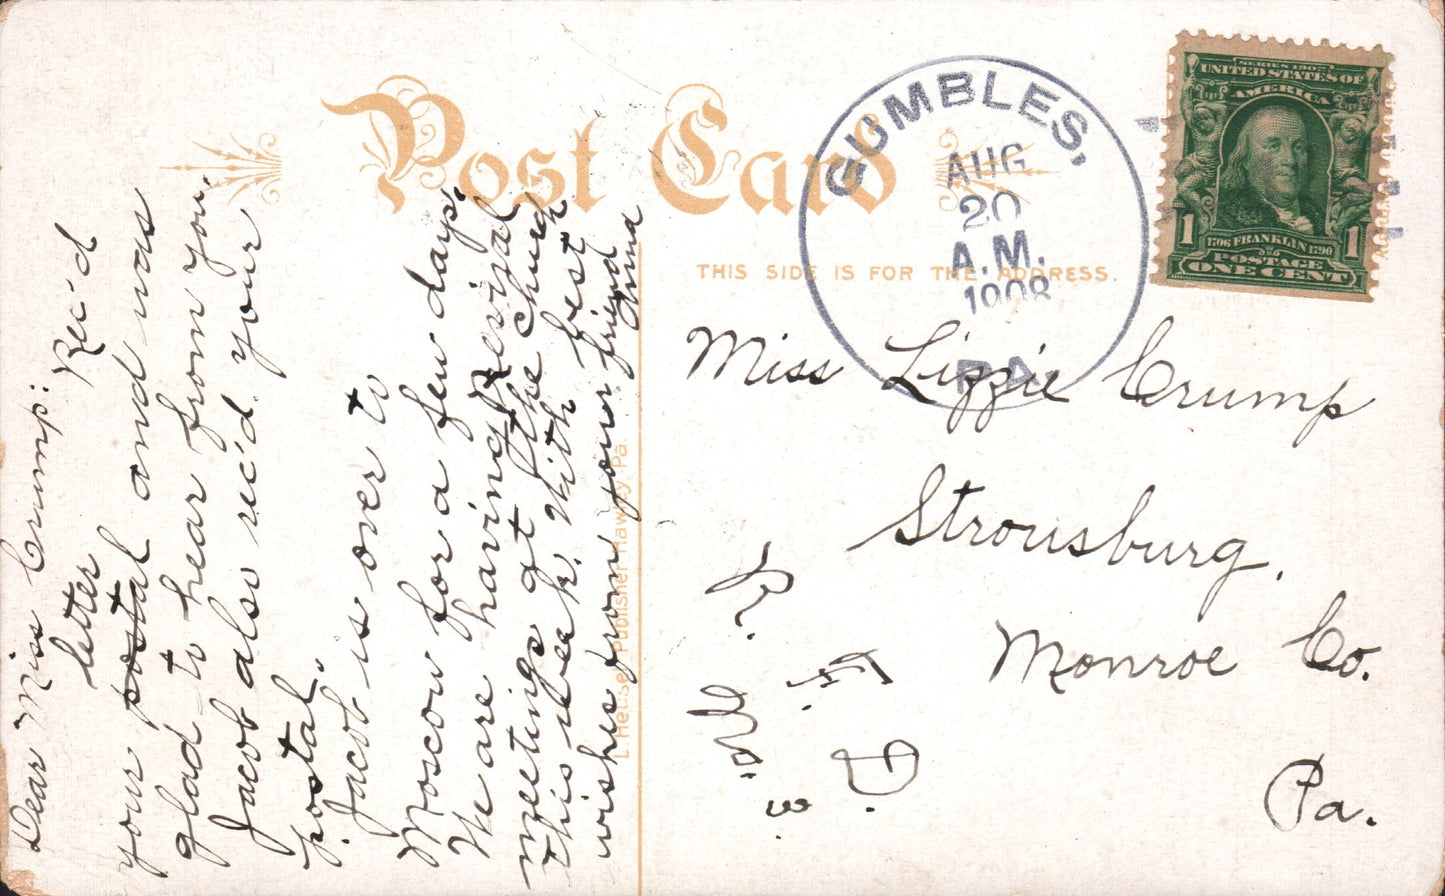 Post Card
THIS SIDE IS FOR THE ADDRESS.
GUMBLES,
AUG
20
A.M.
1908
PA.
SERIES 1902
UNITED STATES OF
AMERICA
1 1706 FRANKLIN 1790 1
POSTAGE
ONE CENT
Dear Miss Crump: Rec'd
letter
your postal and was
glad to hear from you.
Jacob also rec'd your
postal.
Jacob is over to
Moscow for a few days.
We are having Revival
meetings at the Church
this week. With best
wishes from your friend
Anna
L Heuse Publisher Hawley, Pa
Miss Lizzie Crump
Stroudsburg,
Monroe Co.
Pa.
R. F. D.
No. 3